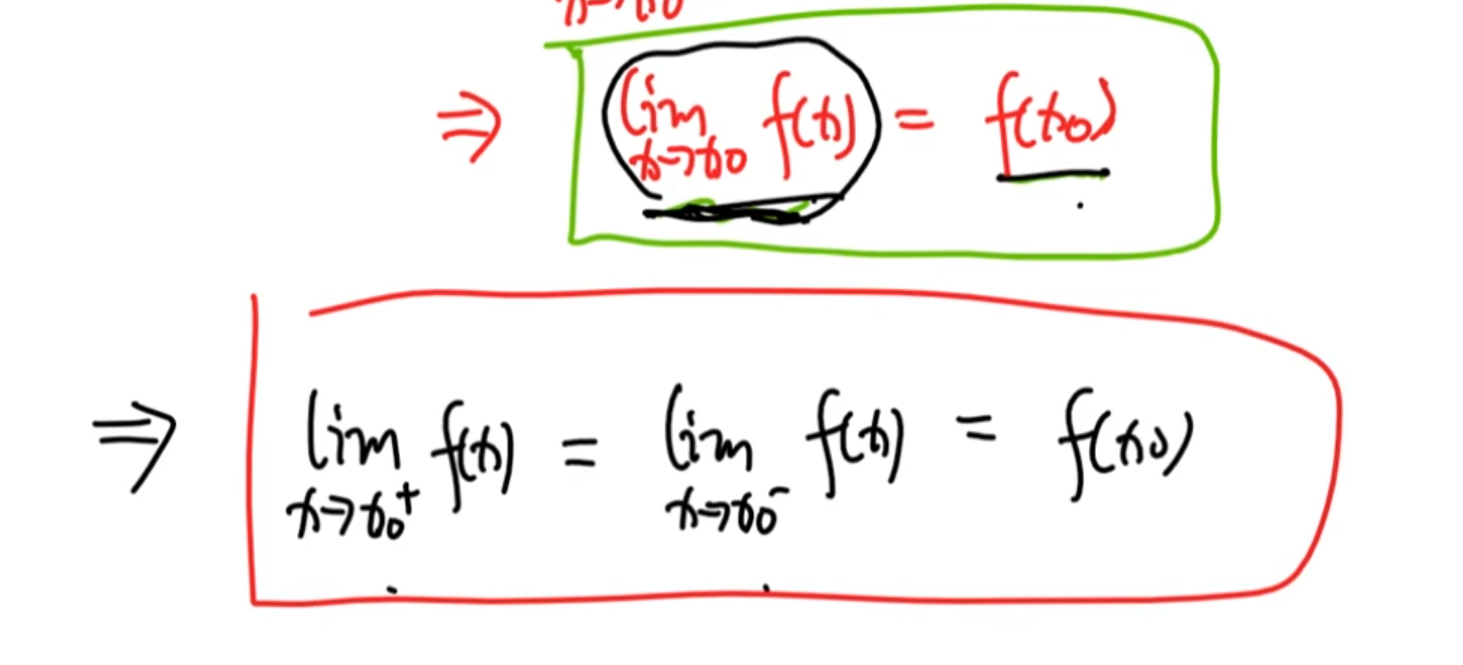 x→x₀
⇒ lim x→x₀ f(x) = f(x₀)
⇒ lim x→x₀⁺ f(x) = lim x→x₀⁻ f(x) = f(x₀)